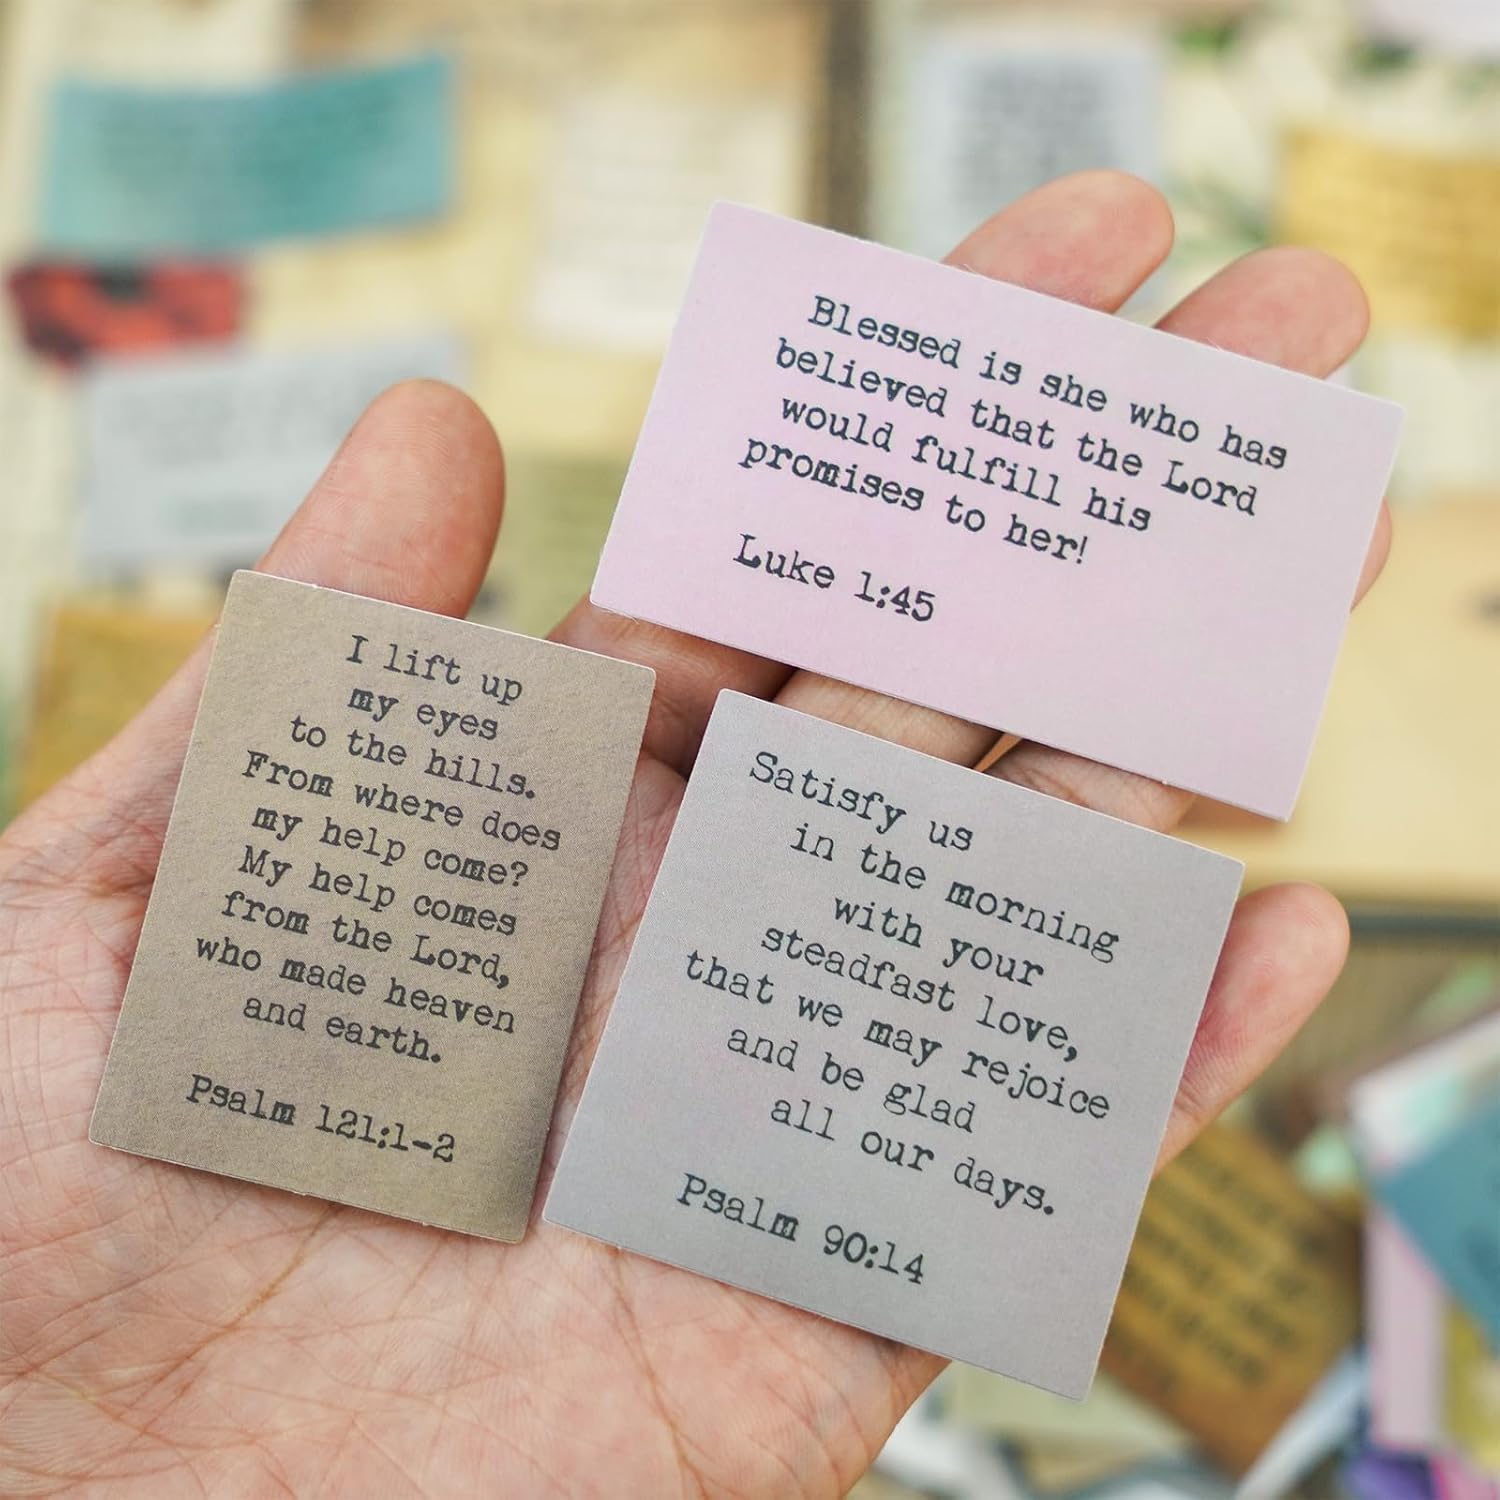 Blessed is she who has
believed that the Lord
would fulfill his
promises to her!
Luke 1:45
I lift up
my eyes
to the hills.
From where does
my help come?
My help comes
from the Lord,
who made heaven
and earth.
Psalm 121:1-2
Satisfy us
in the morning
with your
steadfast love,
that we may rejoice
and be glad
all our days.
Psalm 90:14